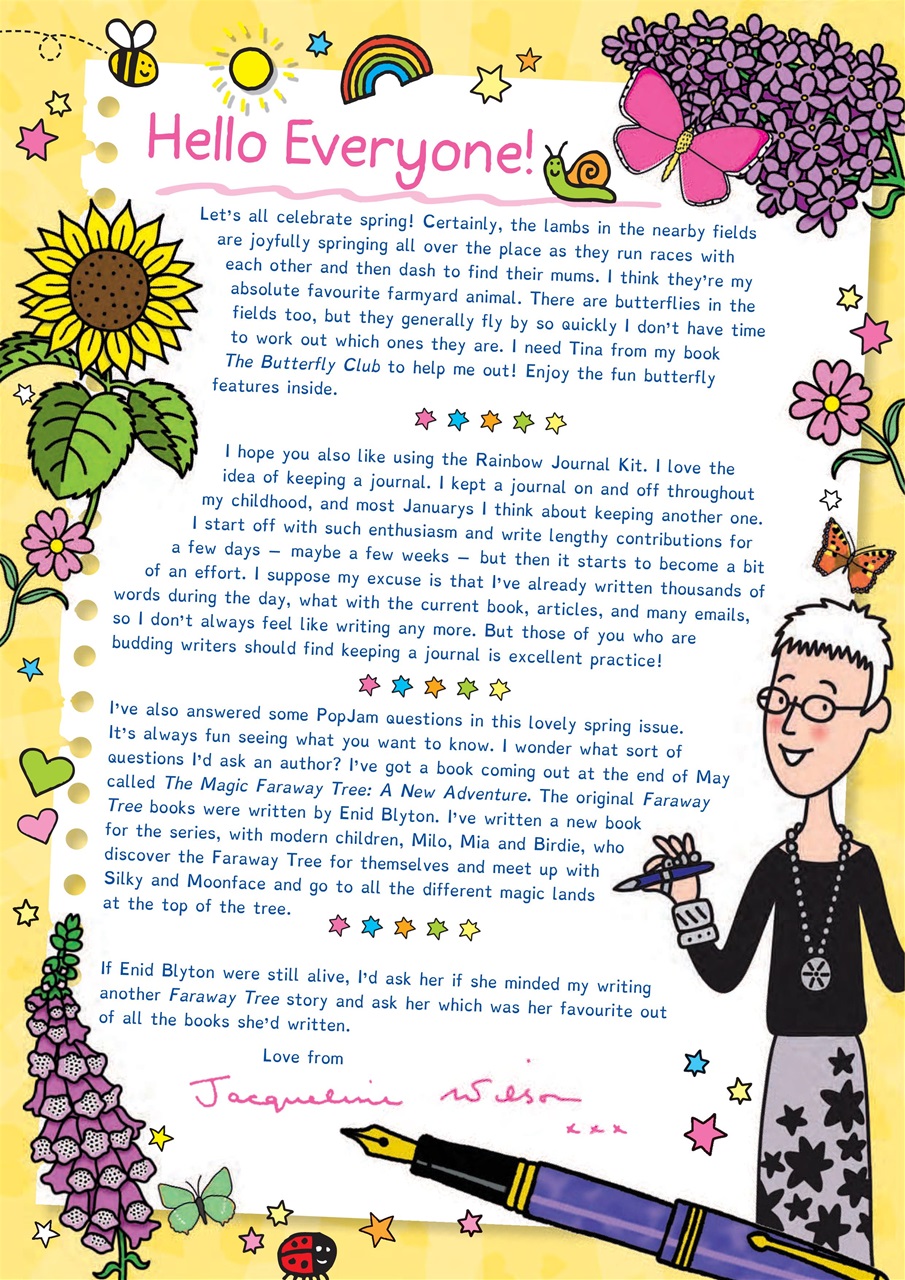 Hello Everyone!
Let's all celebrate spring! Certainly, the lambs in the nearby fields
are joyfully springing all over the place as they run races with
each other and then dash to find their mums. I think they're my
absolute favourite farmyard animal. There are butterflies in the
fields too, but they generally fly by so quickly I don't have time
to work out which ones they are. I need Tina from my book
The Butterfly Club to help me out! Enjoy the fun butterfly
features inside.
I hope you also like using the Rainbow Journal Kit. I love the
idea of keeping a journal. I kept a journal on and off throughout
my childhood, and most Januarys I think about keeping another one.
I start off with such enthusiasm and write lengthy contributions for
a few days – maybe a few weeks – but then it starts to become a bit
of an effort. I suppose my excuse is that I've already written thousands of
words during the day, what with the current book, articles, and many emails,
so I don't always feel like writing any more. But those of you who are
budding writers should find keeping a journal is excellent practice!
I've also answered some PopJam questions in this lovely spring issue.
It's always fun seeing what you want to know. I wonder what sort of
questions I'd ask an author? I've got a book coming out at the end of May
called The Magic Faraway Tree: A New Adventure. The original Faraway
Tree books were written by Enid Blyton. I've written a new book
for the series, with modern children, Milo, Mia and Birdie, who
discover the Faraway Tree for themselves and meet up with
Silky and Moonface and go to all the different magic lands
at the top of the tree.
If Enid Blyton were still alive, I'd ask her if she minded my writing
another Faraway Tree story and ask her which was her favourite out
of all the books she'd written.
Love from
Jacqueline Wilson
x x x